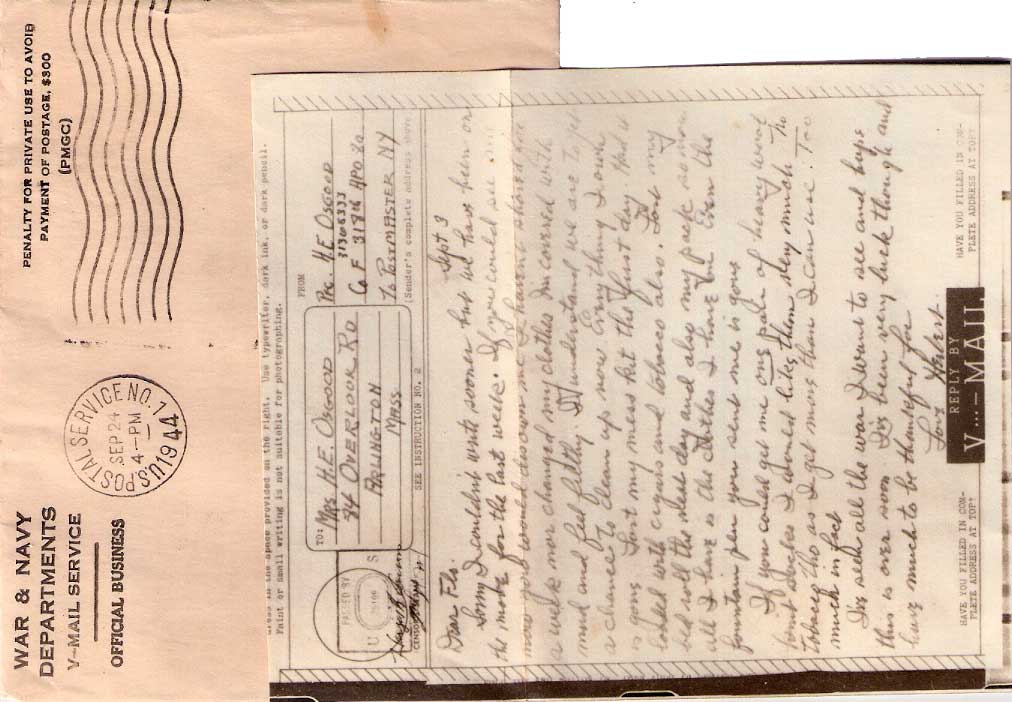 WAR & NAVY
DEPARTMENTS
V-MAIL SERVICE
OFFICIAL BUSINESS
U.S. POSTAL SERVICE NO. 1
SEP 24
4-PM
1944
PENALTY FOR PRIVATE USE TO AVOID
PAYMENT OF POSTAGE, $300
(PMGC)
in the space provided on the right. Use typewriter, dark ink, or dark pencil.
Faint or small writing is not suitable for photographing.
PASSED BY
U S
CENSOR
TO: MRS H.E. OSGOOD
34 OVERLOOK RD
ARLINGTON
MASS
SEE INSTRUCTION NO. 2
FROM
Pvc. H.E. OSGOOD
31306333
Co F 317th APO 80
To POSTMASTER NY
(Sender's complete address above)
Sept 3
Dear Flo.
Sorry I couldnt write sooner but we have been on
the move for the last week. If you could see me
now you would disown me. I havent shaved for
a week nor changed my clothes. Im covered with
mud and feel filthy. I understand we are to get
a chance to clean up now. Every thing I own
is gone. Lost my mess kit the first day. Had it
loaded with cigars and tobacco also. Lost my
bed roll the next day and also my pack so now
all I have is the clothes I have on. Even the
fountain pen you sent me is gone
If you could get me one pair of heavy wool
socks I would like them very much. The
tobacco tho as I get more than I can use. Too
much in fact
Ive seen all the war I want to see and hope
this is over soon. Ive been very lucky though and
have much to be thankful for
Love Herbert
HAVE YOU FILLED IN COM-
PLETE ADDRESS AT TOP?
REPLY BY
V...-MAIL
HAVE YOU FILLED IN COM-
PLETE ADDRESS AT TOP?